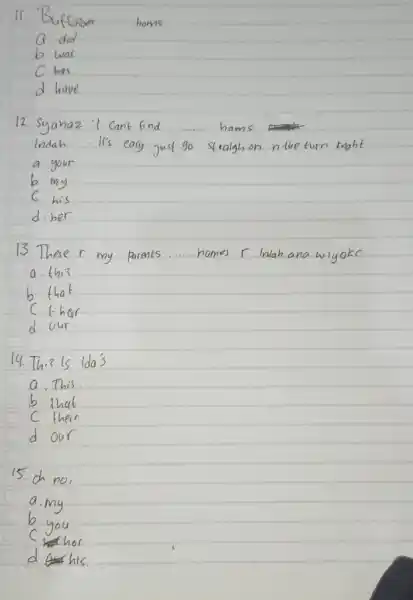 11 Buffalow horns
a did
b was
c has
d have
12 Syahaz : I can't find ..... homs
Indah ..... It's easy just go straigh on n the turn right
a your
b my
c his
d. her
13 These r my parents ..... names r Indah ana wiyoko
a. this
b. that
c their
d our
14. This Is Ida's
a. This
b that
c their
d our
15. oh no,
a. my
b you
c her
d his.